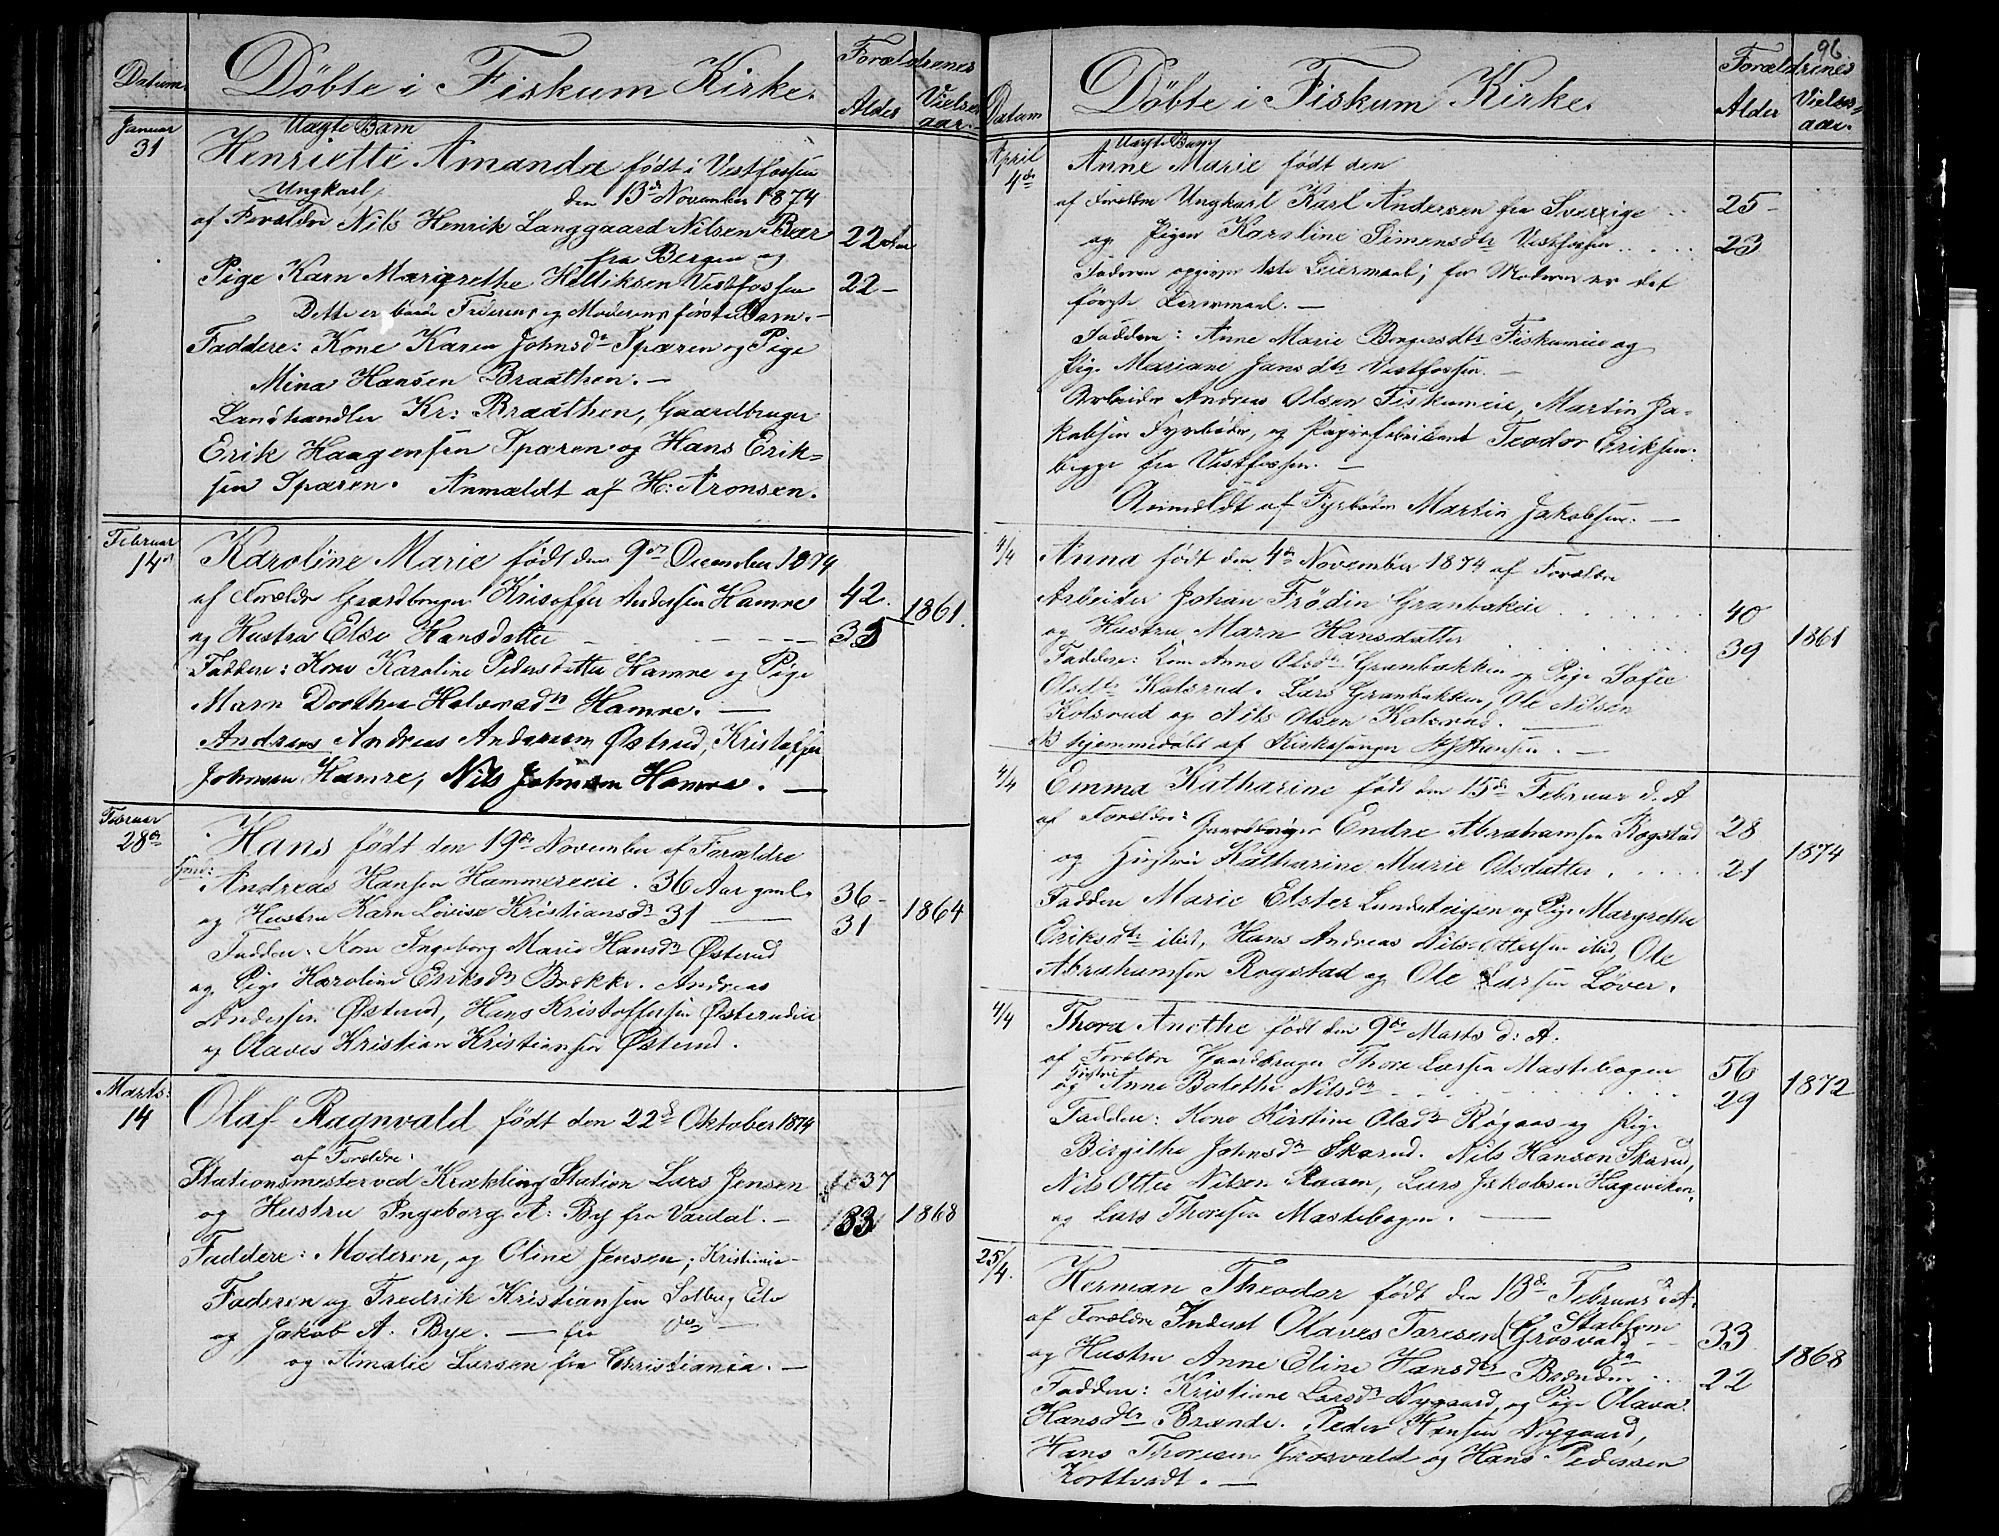 Datum.
Döbte i Fiskum Kirke.
Forældrenes
Alder
Vielses
aar.
Januar
31
Uægte Barn
Henriette Amanda født i Vestfossen
Ungkarl
den 13de November 1874
af Forældre Nils Henrik Langgaard Nilsen Beer
22
fra Bergen og
Pige Karn Margrethe Vestfossen
22 -
Dette er baade Faderens og Moderens første Barn. -
Faddere: Kone Karen Johnsdr Sparen og Pige
Mina Hansen Braathen. -
Landhandler Kr: Braathen, Gaardbruger
Erik Haagensen Sparen og Hans Erik=
sen Sparen. Anmældt af H: Aronsen.
Februar
14de
Karoline Marie født den 9de December 1874
af Forældre Gaardbruger Kristoffer Andersen Hamre
42.
1861.
og Hustru Else Hansdatter
35
Faddere: Kone Karoline Pedersdatter Hamre og Pige
Marn Dorthea Halvorsdr Hamre. -
Andreas Andreas Andersen Østerud, Kristoffer
Johnsen Hamre, Nils Johnsen Hamre. -
Februar
28de
Hans født den 19de November af Forældre
Andreas Hansen Hammereeie. 36 Aar gml.
36 -
1864
og Hustru Karn Lovise Kristiansdr 31
31
Faddere: Kone Ingeborg Marie Hansdr Østerud
og Pige Karoline Eriksdr Bække. Andreas
Andersen Østerud, Hans Kristoffersen Østerudeie
og Olaves Kristian Kristiansen Østerud.
Marts
14
Olaf Ragnvald født den 22de Oktober 1874
af Forældre:
Stationsmester ved Krækling Station Lars Jensen
1837
og Hustru Ingeborg A: By fra Vardal. -
1868
Faddere: Moderen, og Oline Jensen, Kristiania -
Faderen og Fredrik Kristiansen Solberg Elv
og Jakob A. Bye. - fra
og Amalie Larsen fra Christiania. -
96
Datum
Döbte i Fiskum Kirke.
Forældrenes
Alder
Vielses=
aar.
April
4de
Uægte Barn
Anne Marie født den
af Forældre Ungkarl Karl Andersen fra Sverrige
25 -
og Pigen Karoline Simensdtr Vestfossen
23
Faderen opgiver 1ste Leiermaal; for Moderen er det
første Leiermaal. -
Faddere: Anne Marie Borgersdtr Fiskumeie og
Pige Mariane Jansdtr Vestfossen. -
Arbeider Andreas Olsen Fiskumeie, Martin Ja-
kobsen Fyrbøder, og Papirfabrikant Teodor Eriksen.
begge fra Vestfossen. -
Anmeldt af Fyrbøder Martin Jakobsen. -
4/4
Anna født den 4de November 1874 af Forældre
Arbeider Johan Frödin Granbækeie
40
1861
og Hustru Marn Hansdatter
39
Faddere: Kone Anne Olsdr Granbækken og Pige Sofie
Olsdtr Kolsrud. Lars Granbakken, Ole Nilsen
Kolsrud og Nils Olsen Kolsrud.
NB hjemmedøbt af Kirkesanger Hansen. -
4/4
Emma Katharine født den 15de Februar d. A
af Forældre: Gaardbruger Endre Abrahamsen Rogstad
28
1874
og Hustru Katharine Marie Olsdatter.
21
Faddere Marie Elster Lundsteigen og Pige Margrethe
Eriksdtr ibid, Hans Andreas Nils Ottersen ibid, Ole
Abrahamsen Rogstad og Ole Larsen Løver.
4/4
Thora Anethe født den 9de Marts d: A.
af Forældre Gaardbruger Thore Larsen Mastebogen
56
1872
Hustru
og Anne Bolethe Nilsdr
29
Faddere: Kone Kirstine Olsdr Røgaas og Pige
Birgithe Johnsdr Skarud. Nils Hansen Skarud,
Nils Otter Nilsen Raaen, Lars Jakobsen Hageviken,
og Lars Thoresen Mastebogen. -
25/4.
Herman Theodor født den 13de Februar d. A.
af Forældre Inderst Olaves Toresen (Grosvold
33
1868
og Hustru Anne Eline Hansdtr
22
Faddere: Kristine Larsdr Nygaard, og Pige Olava
Hansdtr Brænde. Peder Hansen Nygaard,
Hans Thoresen Grosvold og Hans Pedersen
Korttvedt. -